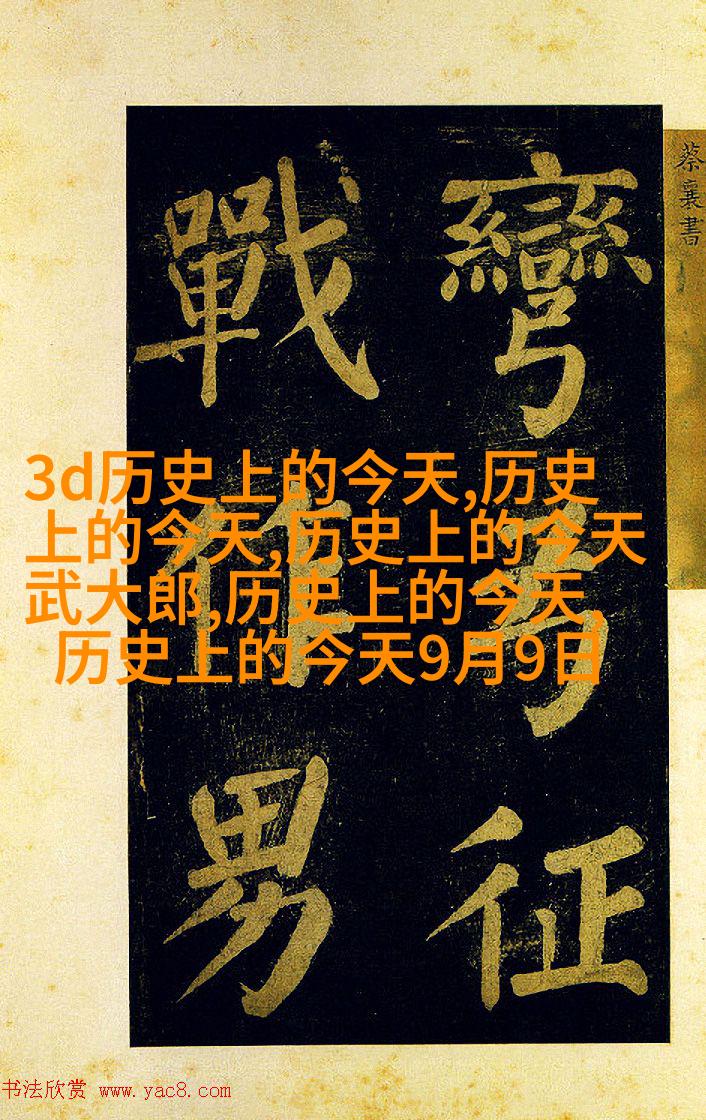 蔡襄書
彎弓征
戰作男
3d历史上的今天,历史
上的今天,历史上的今天
武大郎,历史上的今天,
历史上的今天9月9日
书法欣赏 www.yac8.com